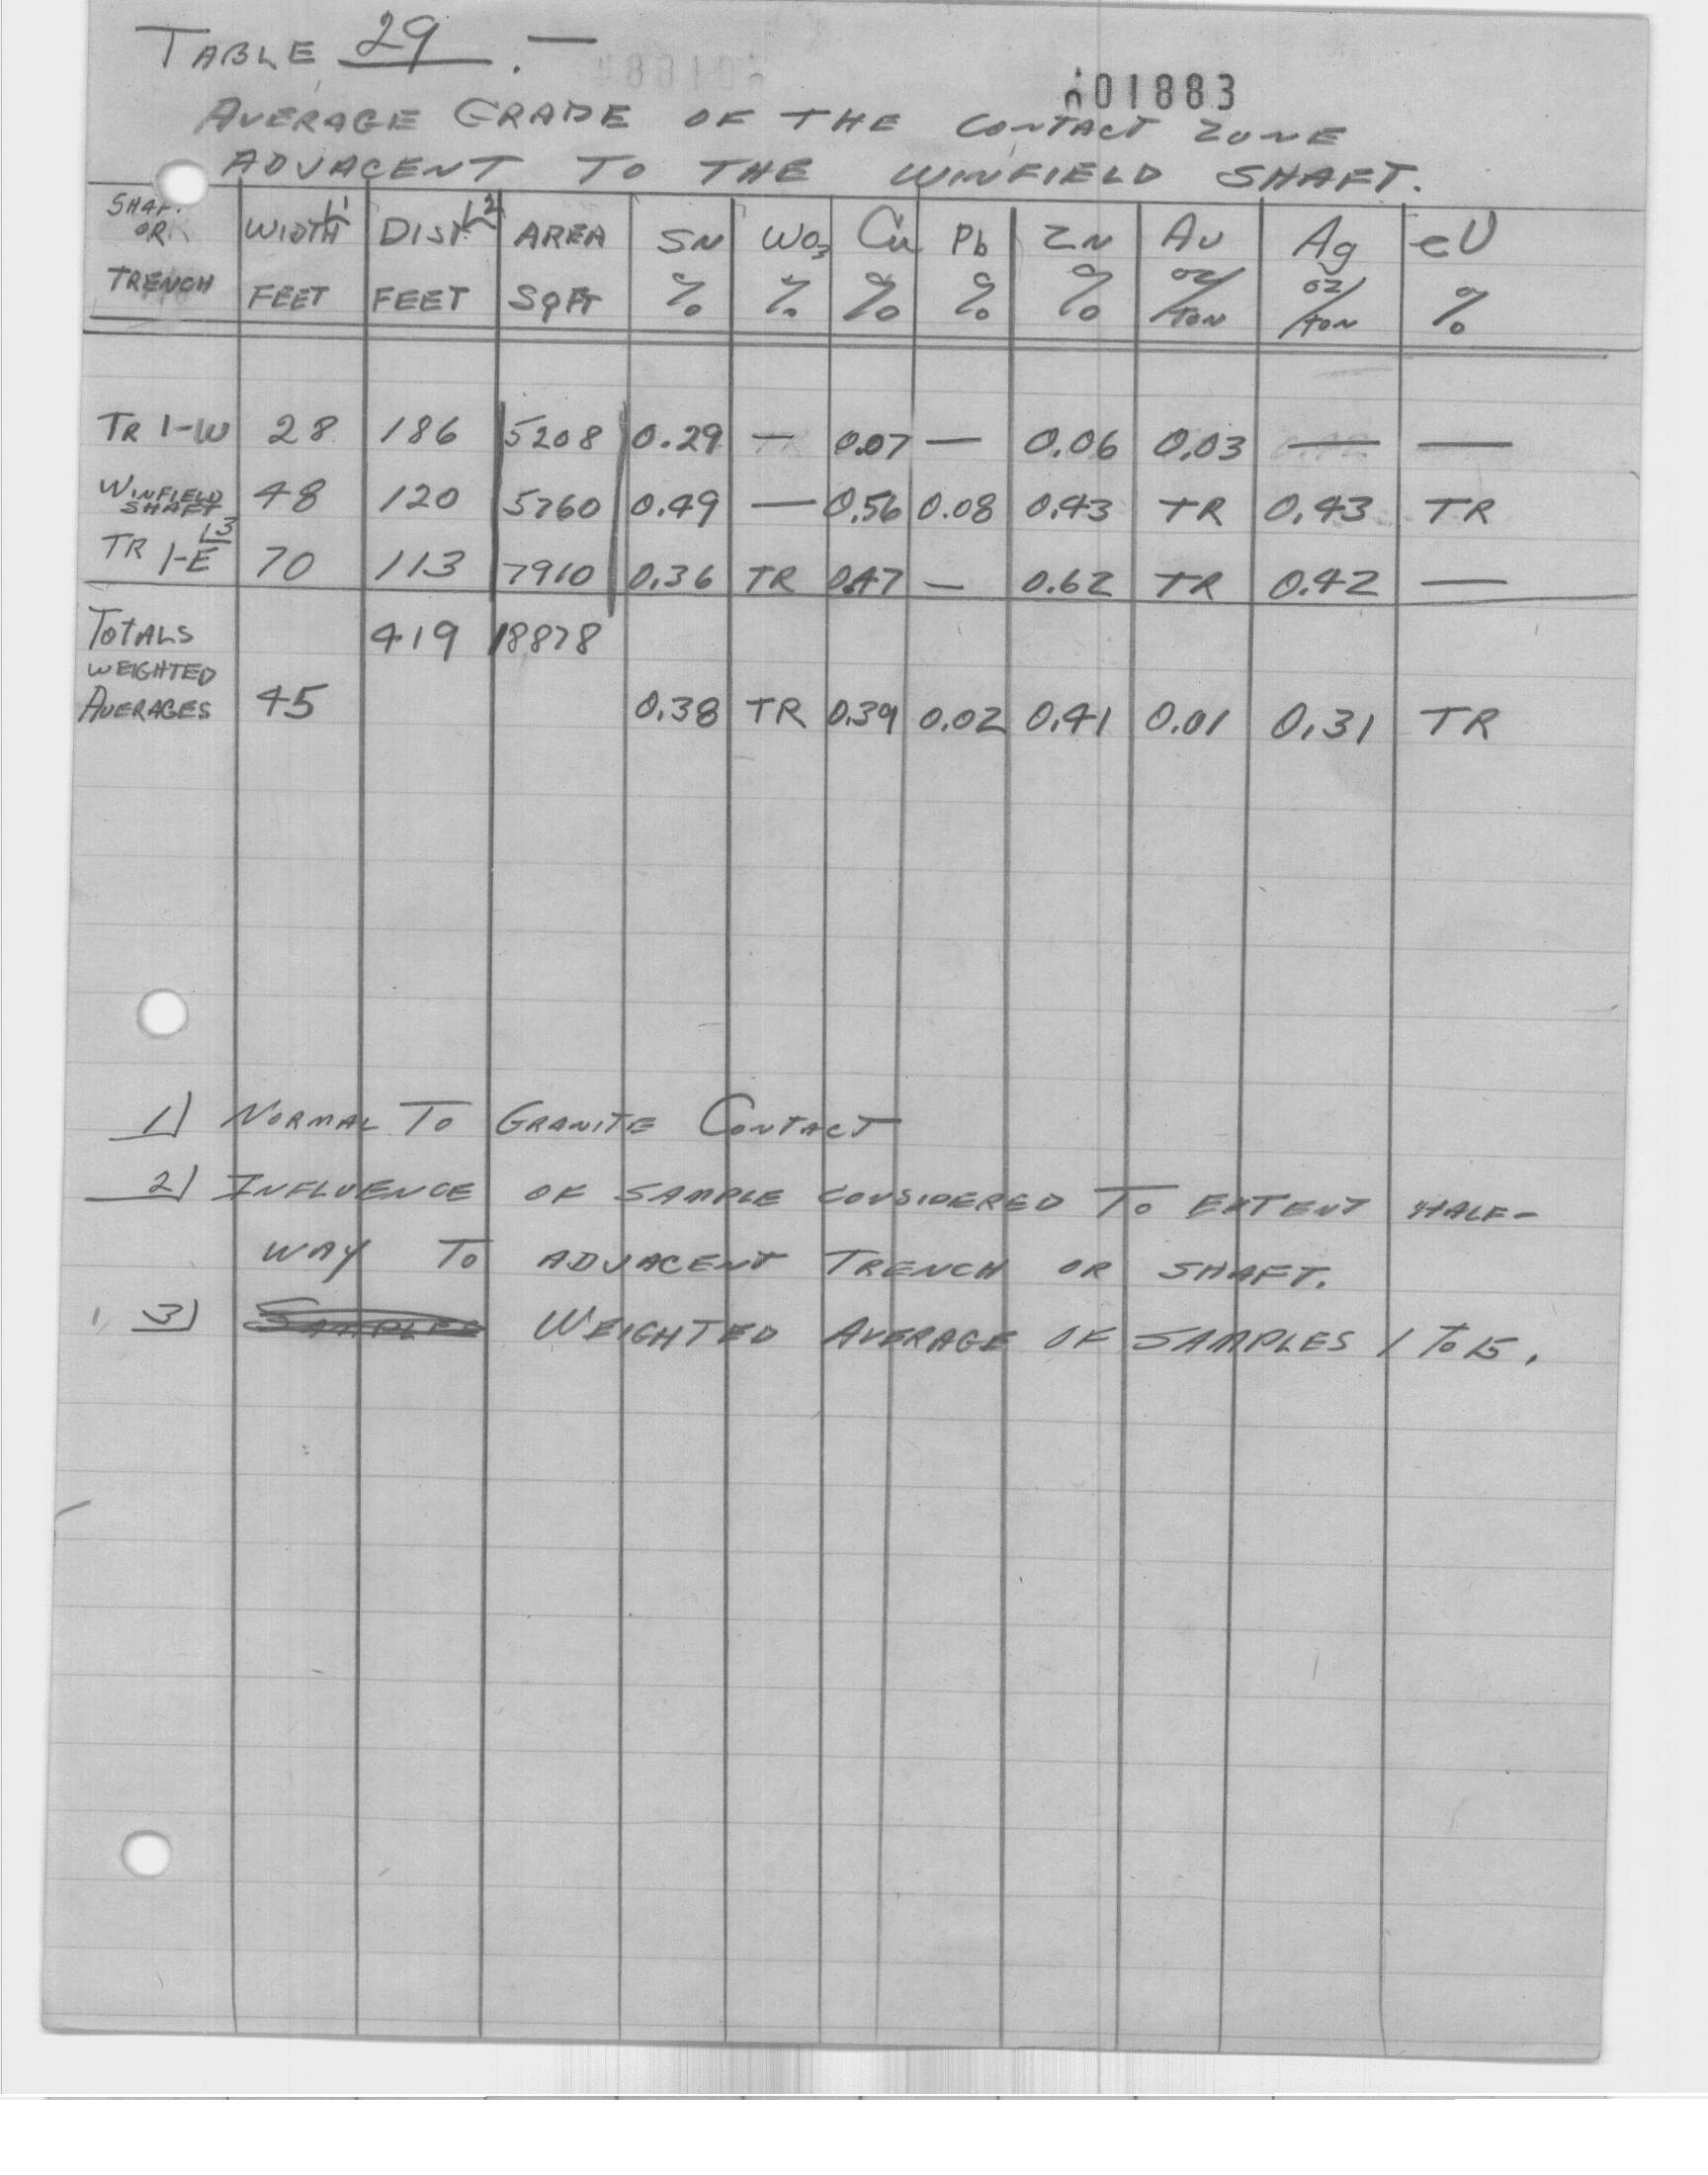 TABLE 29. —
01883
AVERAGE GRADE OF THE CONTACT ZONE
ADJACENT TO THE WINFIELD SHAFT.
SHAF. OR TRENCH | WIDTH 1 FEET | DIST. 2 FEET | AREA SQ FT | SN % | WO3 % | Cu % | Pb % | ZN % | AU OZ/TON | Ag OZ/TON | eU %
TR 1-W | 28 | 186 | 5208 | 0.29 | — | 0.07 | — | 0.06 | 0.03 | — | —
WINFIELD SHAFT | 48 | 120 | 5760 | 0.49 | — | 0.56 | 0.08 | 0.43 | TR | 0.43 | TR
TR 1-E 3 | 70 | 113 | 7910 | 0.36 | TR | 0.47 | — | 0.62 | TR | 0.42 | —
TOTALS | 419 | 18878
WEIGHTED
AVERAGES | 45 | 0.38 | TR | 0.39 | 0.02 | 0.41 | 0.01 | 0.31 | TR
1) NORMAL TO GRANITE CONTACT
2) INFLUENCE OF SAMPLE CONSIDERED TO EXTENT HALF-
WAY TO ADJACENT TRENCH OR SHAFT.
3) WEIGHTED AVERAGE OF SAMPLES 1 TO 15.